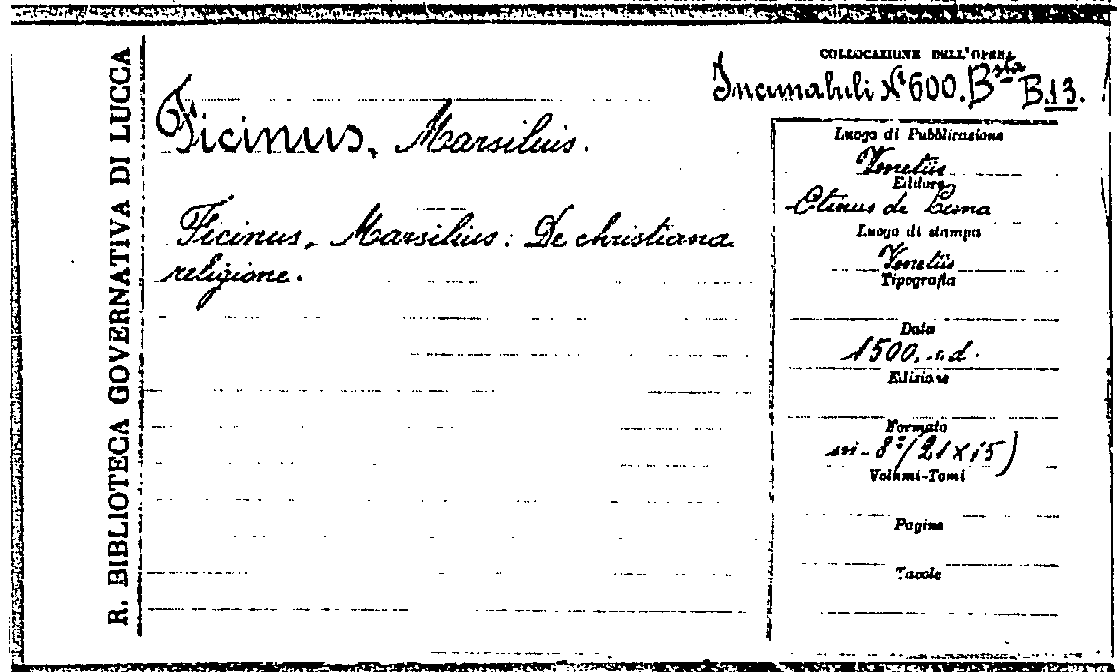 R. BIBLIOTECA GOVERNATIVA DI LUCCA
COLLOCAZIONE DELL'OPERA
Incunabuli N° 600. Bsta B.13.
Ficinus, Marsilius.
Ficinus, Marsilius: De christiana
religione.
Luogo di Pubblicazione
Venetiis
Editore
Otinus de Luna
Luogo di stampa
Venetiis
Tipografia
Data
1500, s.d.
Edizione
Formato
in-8° (21x15)
Volumi-Tomi
Pagine
Tavole